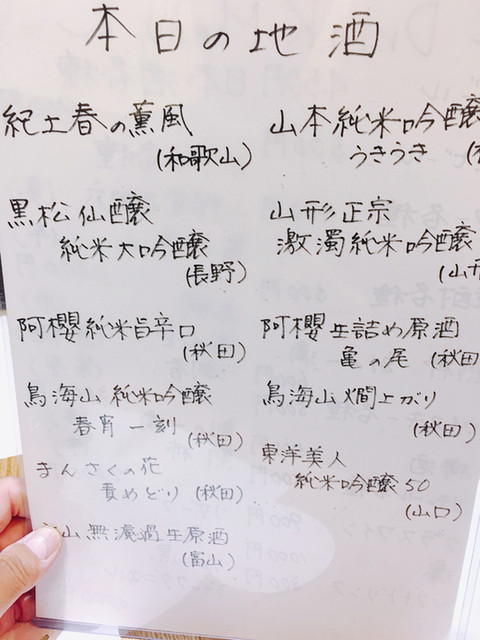 本日の地酒
紀土春の薫風
(和歌山)
黒松仙醸
純米大吟醸
(長野)
阿櫻純米旨辛口
(秋田)
鳥海山 純米吟醸
春宵一刻
(秋田)
まんさくの花
責めどり (秋田)
山無濾過生原酒
(富山)
山本純米吟醸
うきうき
山形正宗
激濁純米吟醸
(山形
阿櫻生詰め原酒
亀の尾 (秋田
鳥海山燗上がり
(秋田)
東洋美人
純米吟醸50
(山口)